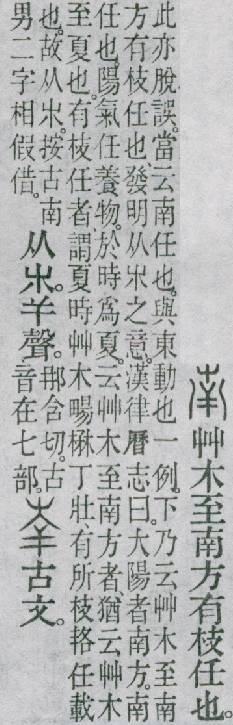 南艸木至南方有枝任也。
此亦脫誤。當云南任也。與東動也一例。下乃云艸木至南
方有枝任也、發明从𣎵之意。漢律曆志曰。大陽者南方。南
任也。陽氣任養物。於時爲夏。云艸木至南方者、猶云艸木
至夏也。有枝任者、謂夏時艸木暢楙丁壯、有所枝挌任載
也。故从𣎵。按古南
男二字相假借。
从𣎵𢆉聲。
那含切。古
音在七部。
𡴖古文。